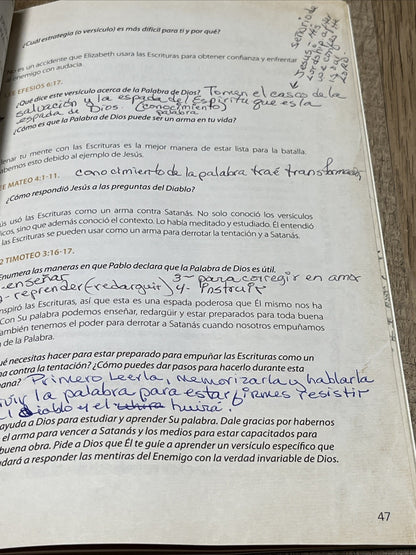 ¿Cuál estrategia (o versículo) es más difícil para ti y por qué?
No es un accidente que Elizabeth usara las Escrituras para obtener confianza y enfrentar
enemigo con audacia.
señorio de
Jesus
EFESIOS 6:17.
¿Qué dice este versículo acerca de la Palabra de Dios? Tomen el casco de la
salvación y la espada del Espiritu que es la
espada de Dios. (conocimiento)
palabra
¿Cómo es que la Palabra de Dios puede ser un arma en tu vida?
llenar tu mente con las Escrituras es la mejor manera de estar lista para la batalla.
abemos esto debido al ejemplo de Jesús.
conocimiento de la palabra traé transformación
E MATEO 4:1-11.
¿Cómo respondió Jesús a las preguntas del Diablo?
ús usó las Escrituras como un arma contra Satanás. No solo conoció los versículos
icos, sino que además conoció el contexto. Lo había meditado y estudiado. Él entendió
las Escrituras se pueden usar como un arma para derrotar la tentación y a Satanás.
2 TIMOTEO 3:16-17.
Enumera las maneras en que Pablo declara que la Palabra de Dios es útil.
-enseñar 3- para corregir en amor
- reprender (redarguir) 4- Instruir
nspiró las Escrituras, así que esta es una espada poderosa que Él mismo nos ha
Con Su palabra podemos enseñar, redargüir y estar preparados para toda buena
ambién tenemos el poder para derrotar a Satanás cuando nosotros empuñamos
de la Palabra.
ué necesitas hacer para estar preparado para empuñar las Escrituras como un
a contra la tentación? ¿Cómo puedes dar pasos para hacerlo durante esta
ana? Primero Leerla, memorizarla y hablarla
la palabra para estar firmes resistir
l diablo y el huira.
ayuda a Dios para estudiar y aprender Su palabra. Dale gracias por habernos
el arma para vencer a Satanás y los medios para estar capacitados para
buena obra. Pide a Dios que Él te guíe a aprender un versículo específico que
dará a responder las mentiras del Enemigo con la verdad invariable de Dios.
47